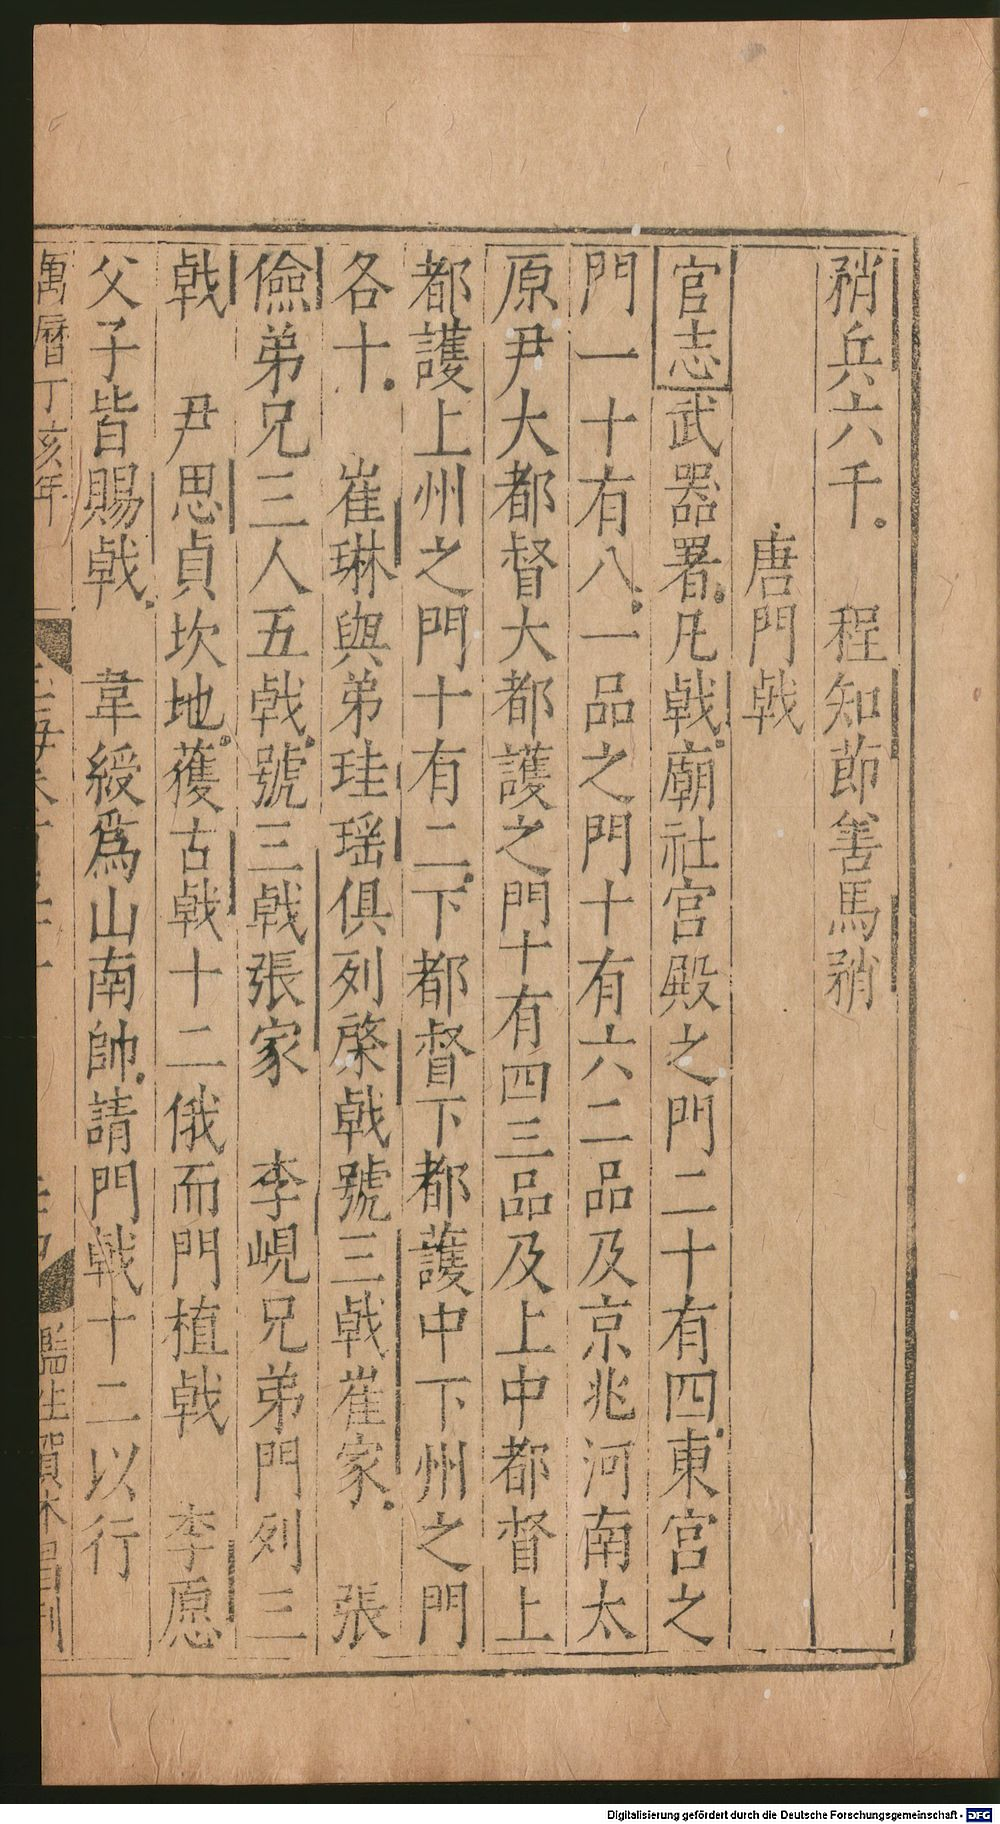 矟兵六千。　程知節善馬矟
唐門戟
官志武器署。凡戟。廟社宮殿之門二十有四。東宮之
門一十有八。一品之門十有六二品及京兆河南太
原尹大都督大都護之門十有四三品及上中都督上
都護上州之門十有二。下都督下都護中下州之門
各十。　崔琳與弟珪瑶俱列棨戟號三戟崔家。　張
儉弟兄三人五戟。號三戟張家　李峴兄弟門列三
戟　尹思貞坎地。獲古戟十二俄而門植戟　李愿
父子皆賜戟。　韋綬爲山南帥。請門戟十二以行
萬曆丁亥年　玉海卷百五十一　監生賀本昌刊
Digitalisierung gefördert durch die Deutsche Forschungsgemeinschaft - DFG